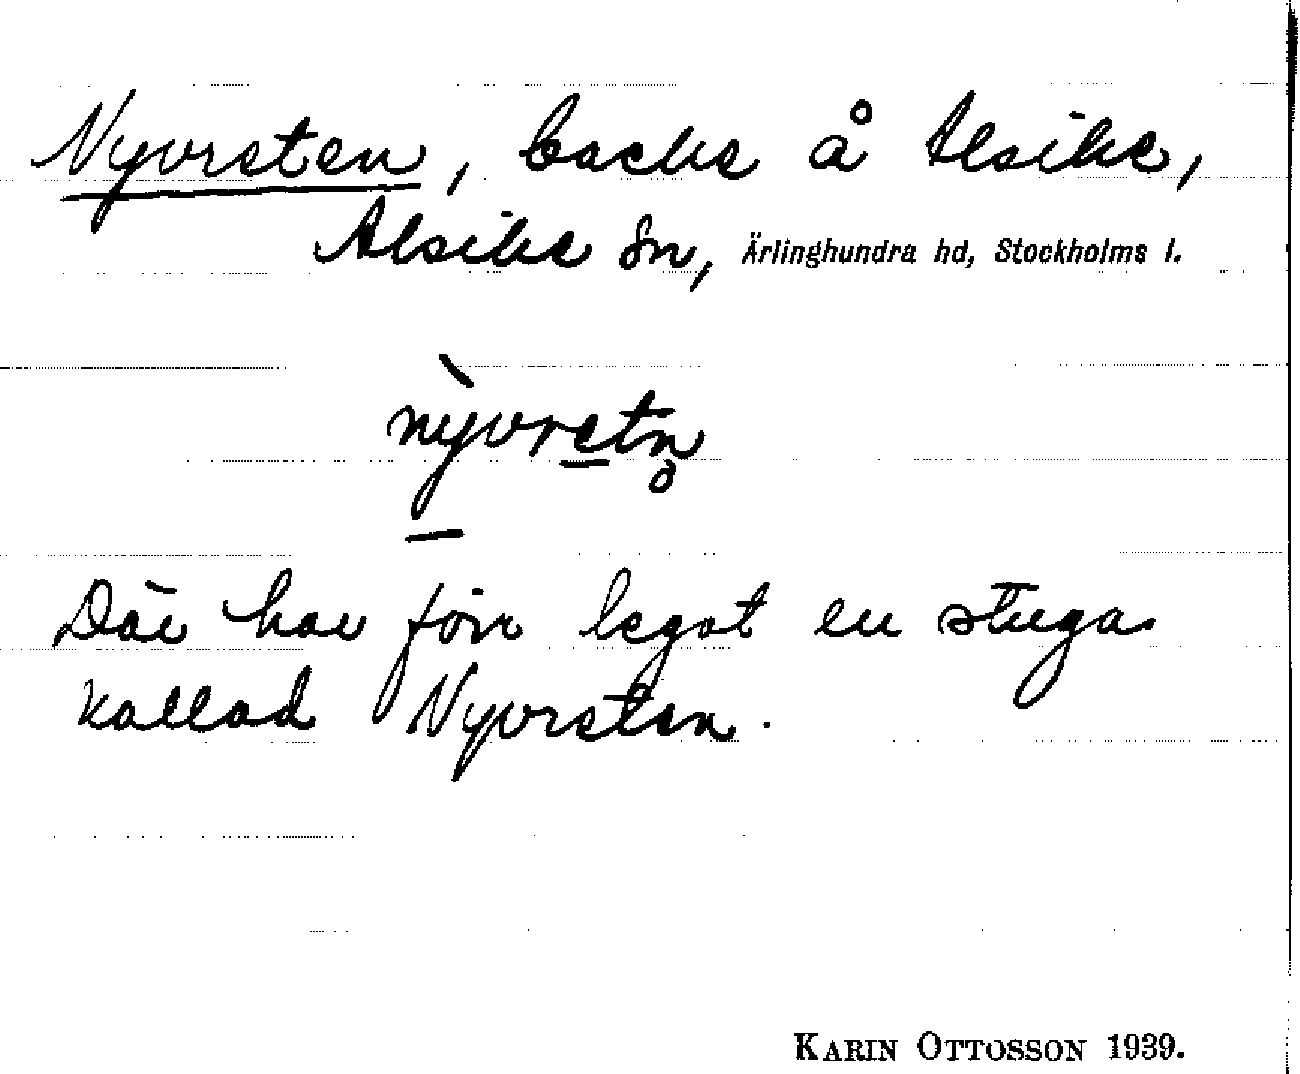 Nyvreten, backe å Alsike,
Alsike sn, Ärlinghundra hd, Stockholms l.
nỳvretn̥
Där har förr legat en stuga
kallad Nyvreten.
KARIN OTTOSSON 1939.